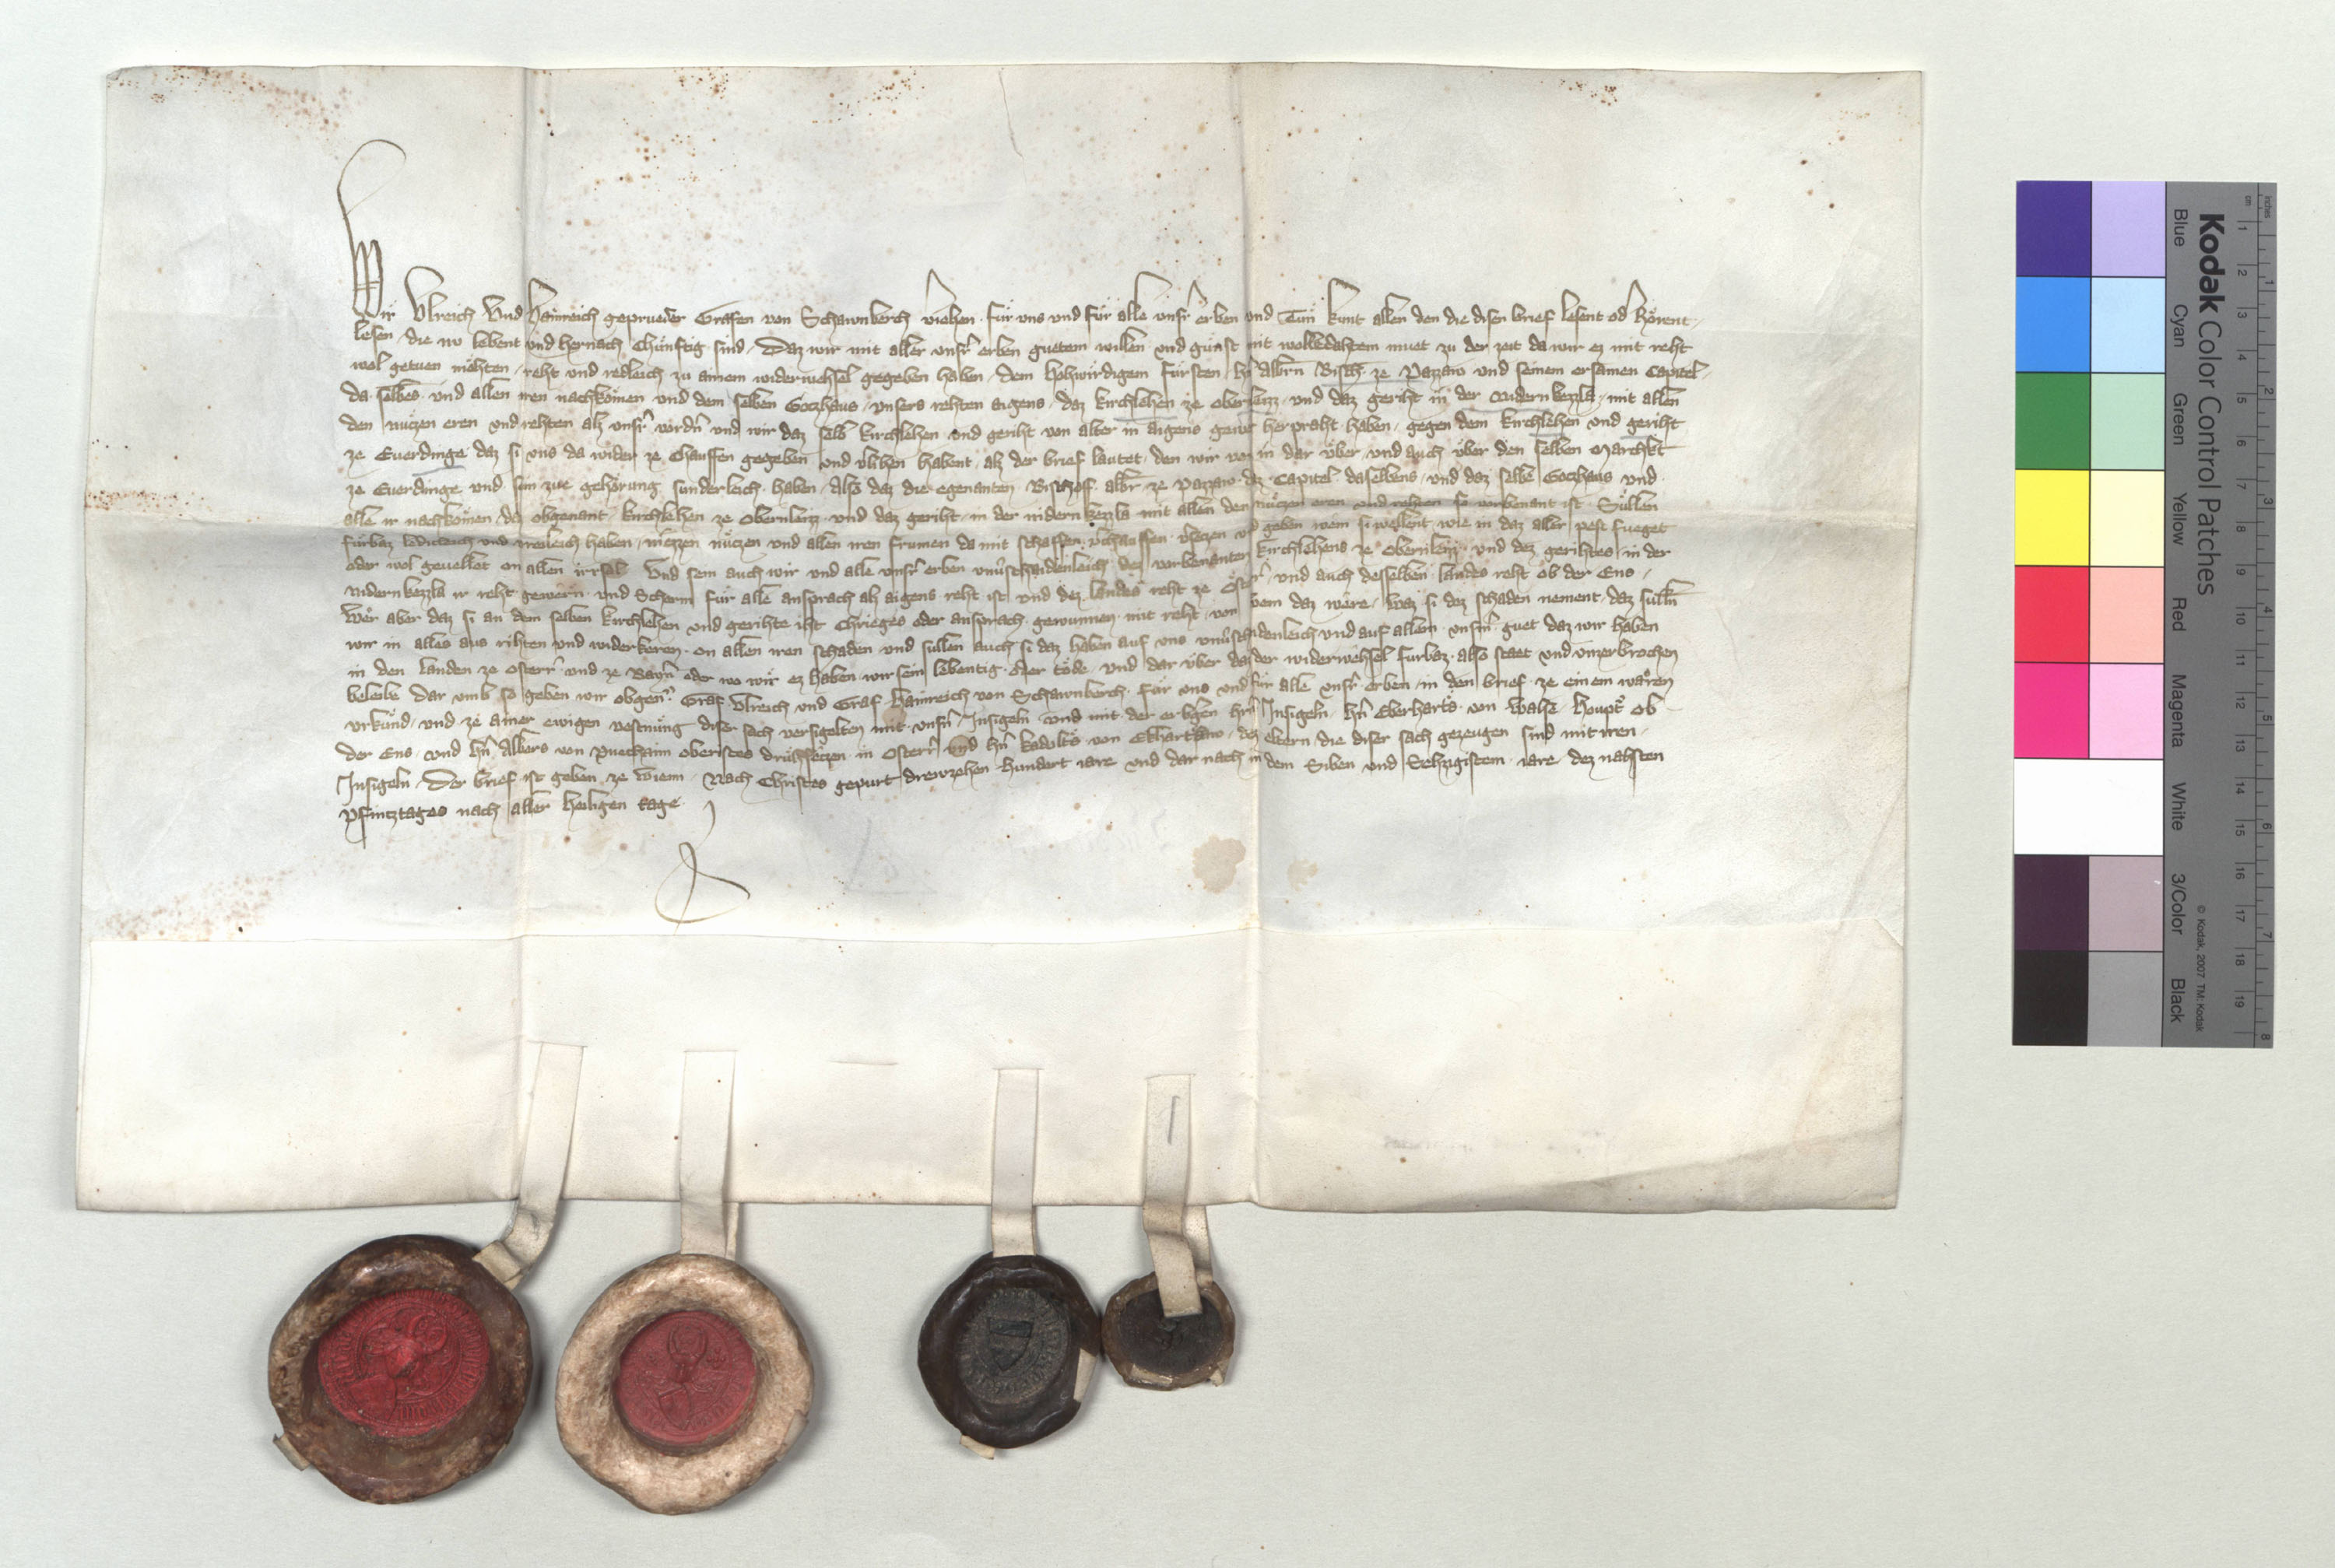 Wir Vlreich Vnd Hainreich geprueder Grafen von Schawnberch veriehen für vns vnd für alle vnsr̄ erben vnd Tün kunt allen den die disen brief lesent od hörent
lesen die nv lebent vnd hernach Chünftig sind Daz wir mit aller vnsr̄ erben guetem willen vnd gunst mit wolbedahtem muet zu der zeit da wir ez mit reht
wol getuen mohten reht vnd redleich zu ainem widerwehsel gegeben haben dem hohwirdigem Fürsten hn̄ Albrn Bisch ze Pazzaw vnd seinem ersamen Capitel
da selbes vnd allen iren nachkömen vnd dem selben Gotzhaus vnsers rehten aigens daz kirchlehen ze Obernlenz vnd daz geriht in der Nidern kezzla mit allen
den nuczen eren vnd rehten alz vnsr̄ vordn̄ vnd wir daz selb kirchlehen vnd geriht von alter in aigens gewer herpraht haben gegen dem kirchlehen vnd geriht
ze Euerdinge daz si vns da wider ze Chauffen gegeben vnd v̄lihen habent alz der brief lautet den wir von in dar über vnd auch über den selben Marchkt
ze Euerdinge vnd sein zue gehörung sunderleich haben Also daz die egenanten Bischoff albr̄ ze Pazzaw daz Capitel daselbens vnd daz selbe Gotzhaus vnd
alle ir nachkömen daz obgenant kirchlehen ze Obernlenz vnd daz geriht in der nidern kezzla mit allen den nuczen eren vnd rehten so vorbenant ist Süllen
fürbaz ledichleich vnd vreileich haben niezzen nuczen vnd allen iren frumen da mit schaffen v̄chauffen v̄seczen vnd geben wem si wellent wie in daz aller pest fueget
oder wol geuellet on allen irrsal Vnd sein auch wir vnd alle vnsr̄ erben vnu̍schaidenleich dez vorbenanten kirchlehens ze Obernlenz vnd dez gerihtes in der
nidern kezzla ir reht gewern vnd Scherm für alle ansprach alz aigens reht ist vnd dez landes reht ze Österr̄ vnd auch desselben landes reht ob der Ens
Wer aber daz si an dem selben kirchlehen vnd gerihte iht Chrieges oder ansprach gewunnen mit reht von wem daz were Waz si dez schaden nement daz sulln̄
wir in allas aus rihten vnd widerkeren on allen iren schaden vnd sullen auch si daz haben auf vns vnu̍schaidenleich vnd auf allem vnsm̄ guet daz wir haben
in den landen ze Osterr̄ vnd ze Bayrn̄ oder wo wir ez haben wir sein lebentig oder tode vnd dar über daz der widerwehsel furbaz also staet vnd vnzerbrochen
beleibe dar vmb so geben wir obgen̄ Graf Vlreich vnd Graf Hainreich von Schawnberch für vns vnd für alle vnsr̄ erben in den brief ze einem waren
vrkund vnd ze ainer ewigen vestnung diser sach versigelten mit vnsrn̄ Insigeln vnd mit der erbgen hrn̄ Insigeln hn̄ Eberharts von Walse Houptz̄ ob
der Ens vnd hn̄ Albers von Puechaim obristes druhseczen in Osterr̄ vnd hn̄ kadolts von Ekhartsaw dez eltern die diser sach gezeugen sind mit iren
Insigeln Der brief ist geben ze Wienn Nach Christes gepurt drewzehen hundert iare vnd dar nach in dem Siben vnd Sehzigistem iare dez nahsten
Pfintztages nach aller heiligen tage
Kodak Color Control Patches
Blue Cyan Green Yellow Red Magenta White 3/Color Black
© Kodak, 2007 TM: Kodak
inches 1 2 3 4 5 6 7 8
cm 1 2 3 4 5 6 7 8 9 10 11 12 13 14 15 16 17 18 19